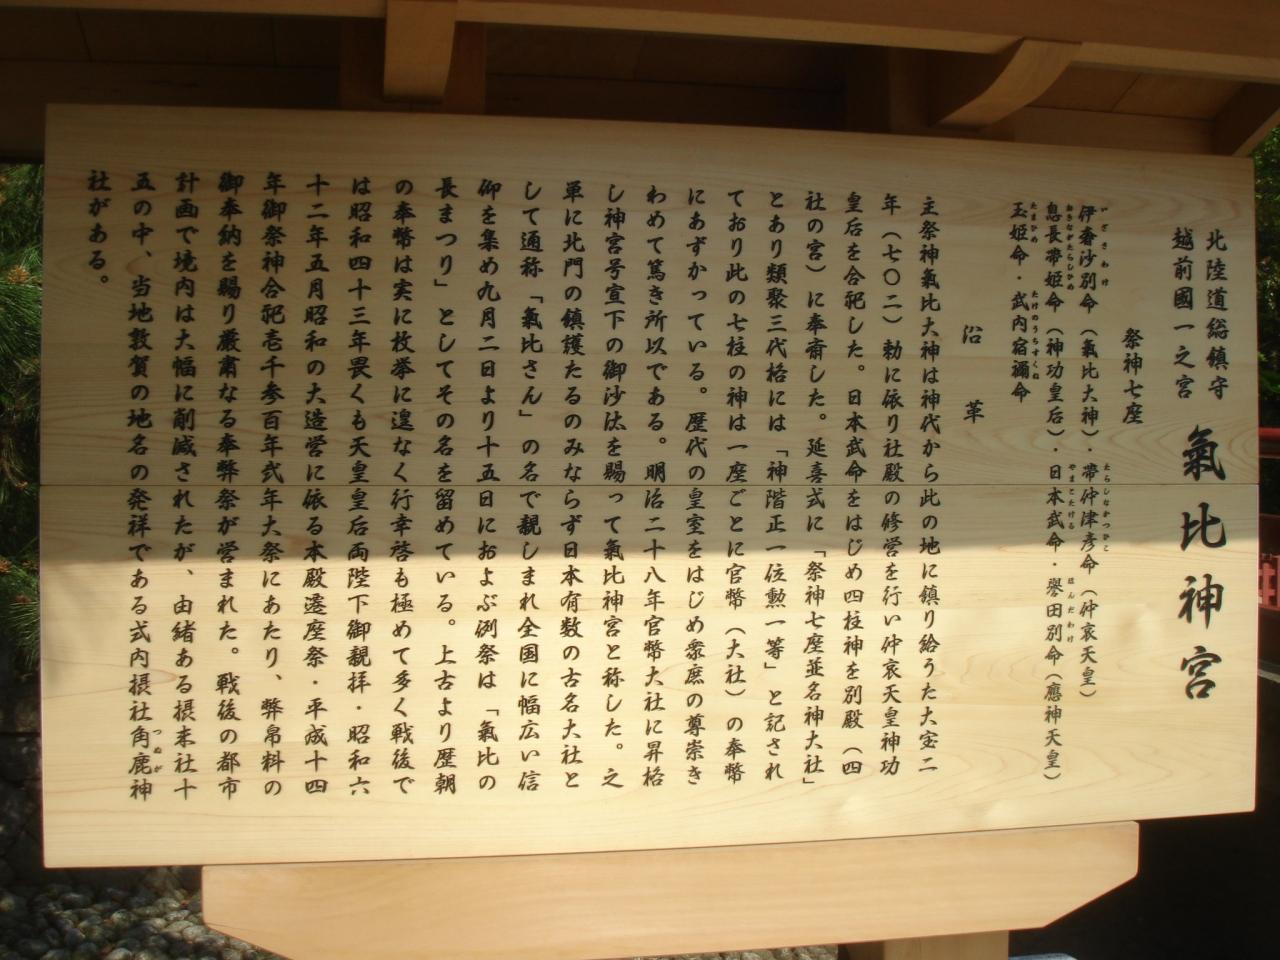 北陸道総鎮守
越前國一之宮
氣比神宮
祭神七座
伊奢沙別命（氣比大神）・帯仲津彦命（仲哀天皇）
いざさわけ
たらしなかつひこ
息長帯姫命（神功皇后）・日本武命・誉田別命（應神天皇）
おきながたらしひめ
やまとたける
ほんだわけ
玉姫命・武内宿禰命
たまひめ
たけのうちすくね
沿革
主祭神氣比大神は神代から此の地に鎮り給うた大宝二
年（七〇二）勅に依り社殿の修営を行い仲哀天皇神功
皇后を合祀した。日本武命をはじめ四柱神を別殿（四
社の宮）に奉斎した。延喜式に「祭神七座並名神大社」
とあり類聚三代格には「神階正一位勲一等」と記され
ており此の七柱の神は一座ごとに官幣（大社）の奉幣
にあずかっている。歴代の皇室をはじめ衆庶の尊崇き
わめて篤き所以である。明治二十八年官幣大社に昇格
し神宮号宣下の御沙汰を賜って氣比神宮と称した。之
単に北門の鎮護たるのみならず日本有数の古名大社と
して通称「氣比さん」の名で親しまれ全国に幅広い信
仰を集め九月二日より十五日におよぶ例祭は「氣比の
長まつり」としてその名を留めている。上古より歴朝
の奉幣は実に枚挙に遑なく行幸啓も極めて多く戦後で
は昭和四十三年畏くも天皇皇后両陛下御親拝・昭和六
十二年五月昭和の大造営に依る本殿遷座祭・平成十四
年御祭神合祀壱千参百年弐年大祭にあたり、弊帛料の
御奉納を賜り厳粛なる奉弊祭が営まれた。戦後の都市
計画で境内は大幅に削減されたが、由緒ある摂末社十
五の中、当地敦賀の地名の発祥である式内摂社角鹿神
つぬが
社がある。